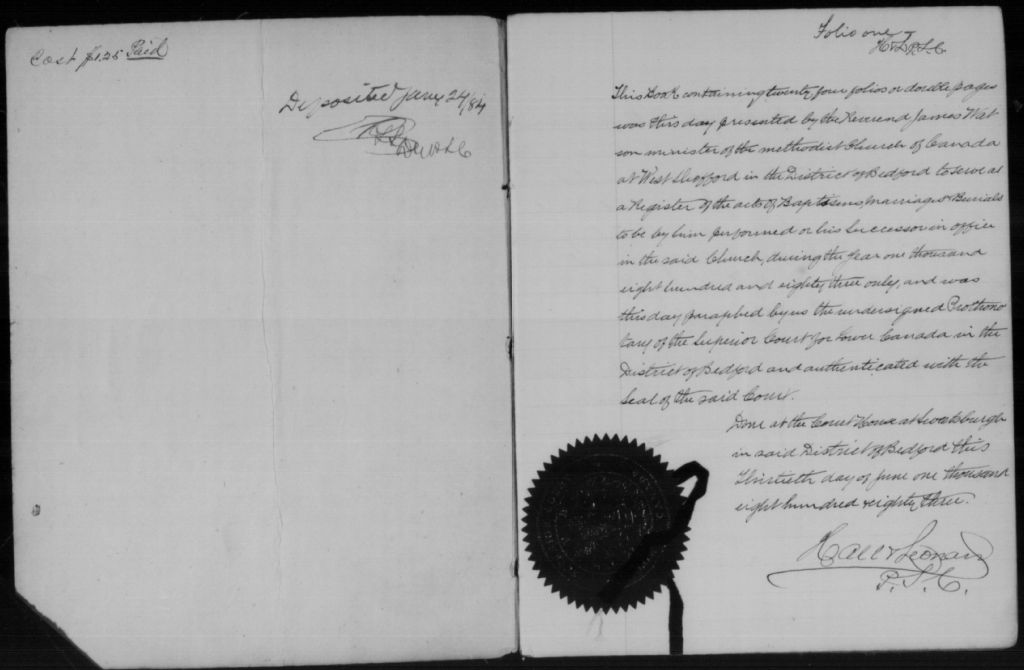 Cost $1.25 Paid
Deposited Jany 24/84
Folio one
H & L P.S.C.
This Book containing twenty four folios or double pages
was this day presented by the Reverend James Wat
son minister of the methodist Church of Canada
at West Shefford in the District of Bedford to serve as
a Register of the acts of Baptisms, marriages & Burials
to be by him performed or his Successor in office
in the said Church, during the year one thousand
eight hundred and eighty three only, and was
this day paraphed by us the undersigned Prothono
tary of the Superior Court for Lower Canada in the
District of Bedford and authenticated with the
Seal of the said Court.
Done at the Court House at Sweetsburgh
in said District of Bedford this
Thirtieth day of June one thousand
eight hundred & eighty three.
Hall & Leonard
P.S.C.